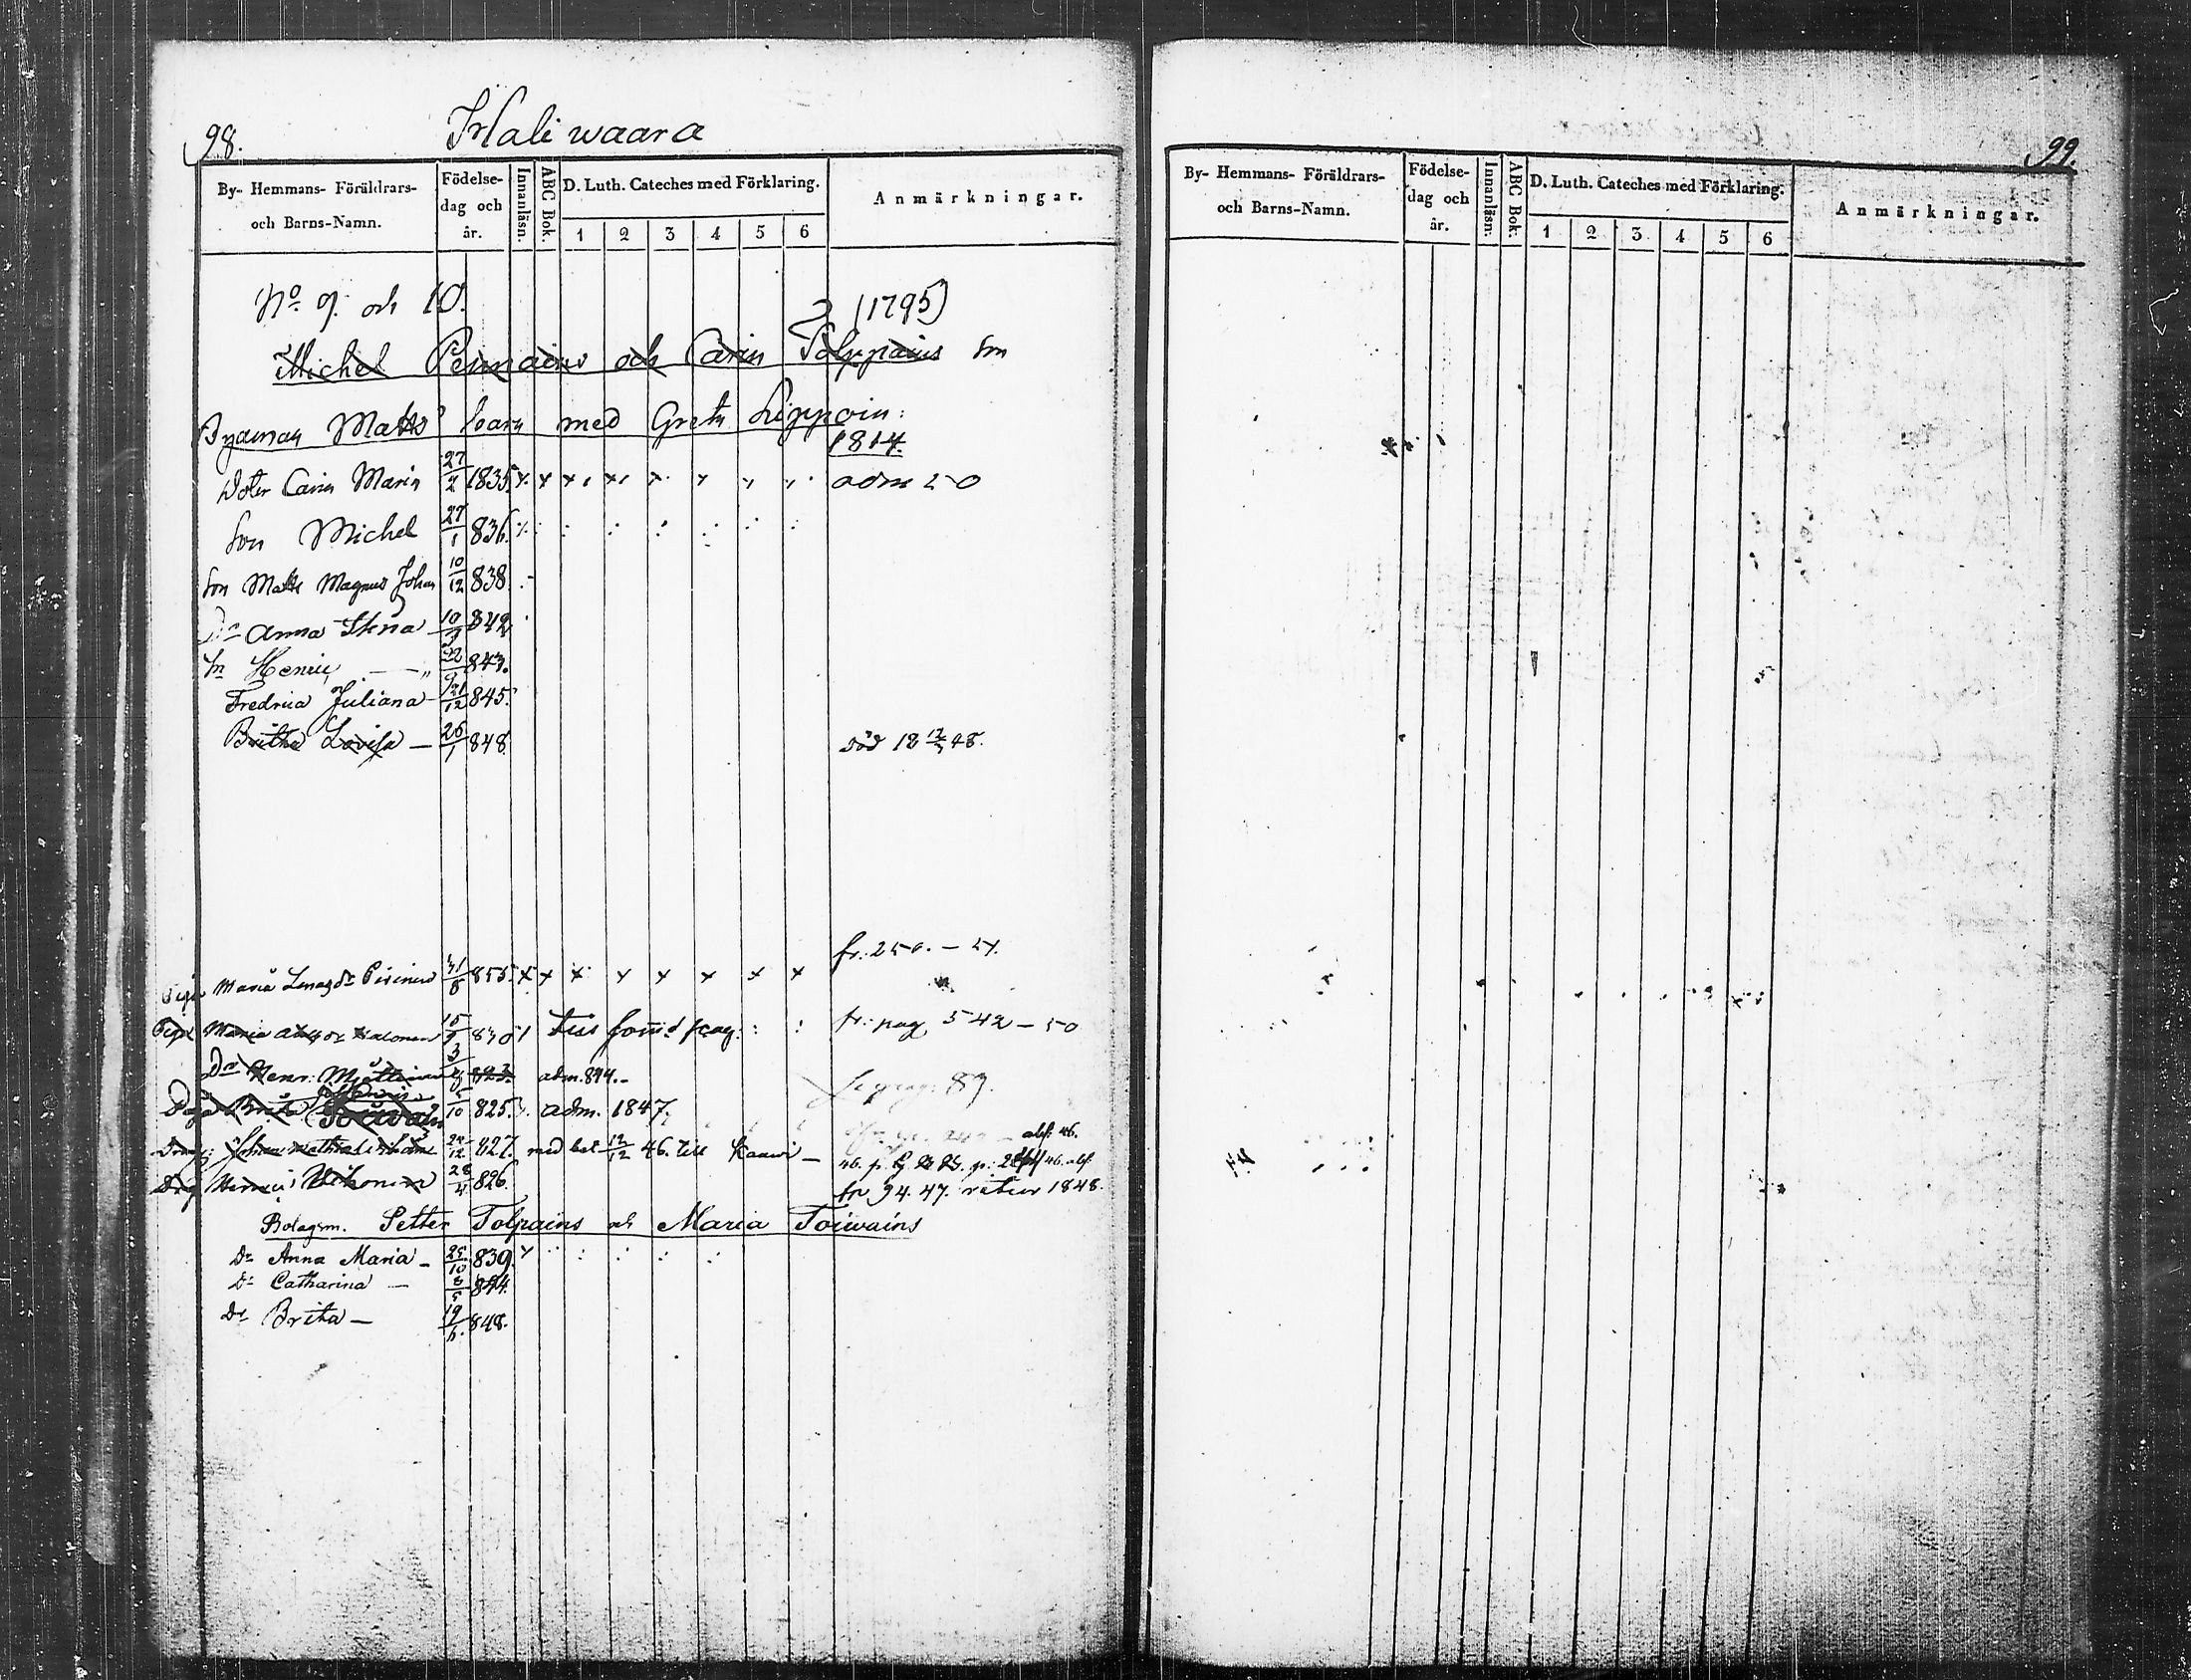 98.
Haliwaara
By- Hemmans- Föräldrars- och Barns-Namn.
Födelse-dag och år.
Innanläsn.
ABC Bok.
D. Luth. Cateches med Förklaring.
1 2 3 4 5 6
Anmärkningar.
No 9. och 10.
(1795)
Michel och Carin Tolppains Son
Byaman Matts' barn med Greta Lippoin:
1814.
Dotter Carin Maria 27/2 1835. x x x x x adm 50
Son Michel 27/1 836.
Son Matts Magnus Johan 10/12 838
Dr Anna Stina 10/3 842
Sn Henric 22/9 843.
Fredrica Juliana 21/12 845.
Britha Lovisa — 26/1 848. död 18 12/3 48.
fr: 250. — 51.
Piga Maria 31/8 835. x x x x x x x x
Piga Maria 830 fr: pag 542 — 50
Dr Henr: 3 823. adm. 844.-
Se pag: 89.
Brita Toiwain 10 825. adm. 1847.
Johan 12 827. med bet 12/12 46. till Kaawi — abf: 46.
Henric 28/4 826. fr 94. 47. retur 1848.
Bolagsm. Petter Tolpains och Maria Toiwains
Dr Anna Maria — 25/10 839.
Dr Catharina — 8/5 844.
Dr Britha — 19/6. 848.
99.
By- Hemmans- Föräldrars- och Barns-Namn.
Födelse-dag och år.
Innanläsn:
ABC Bok:
D. Luth. Cateches med Förklaring.
1 2 3 4 5 6
Anmärkningar.